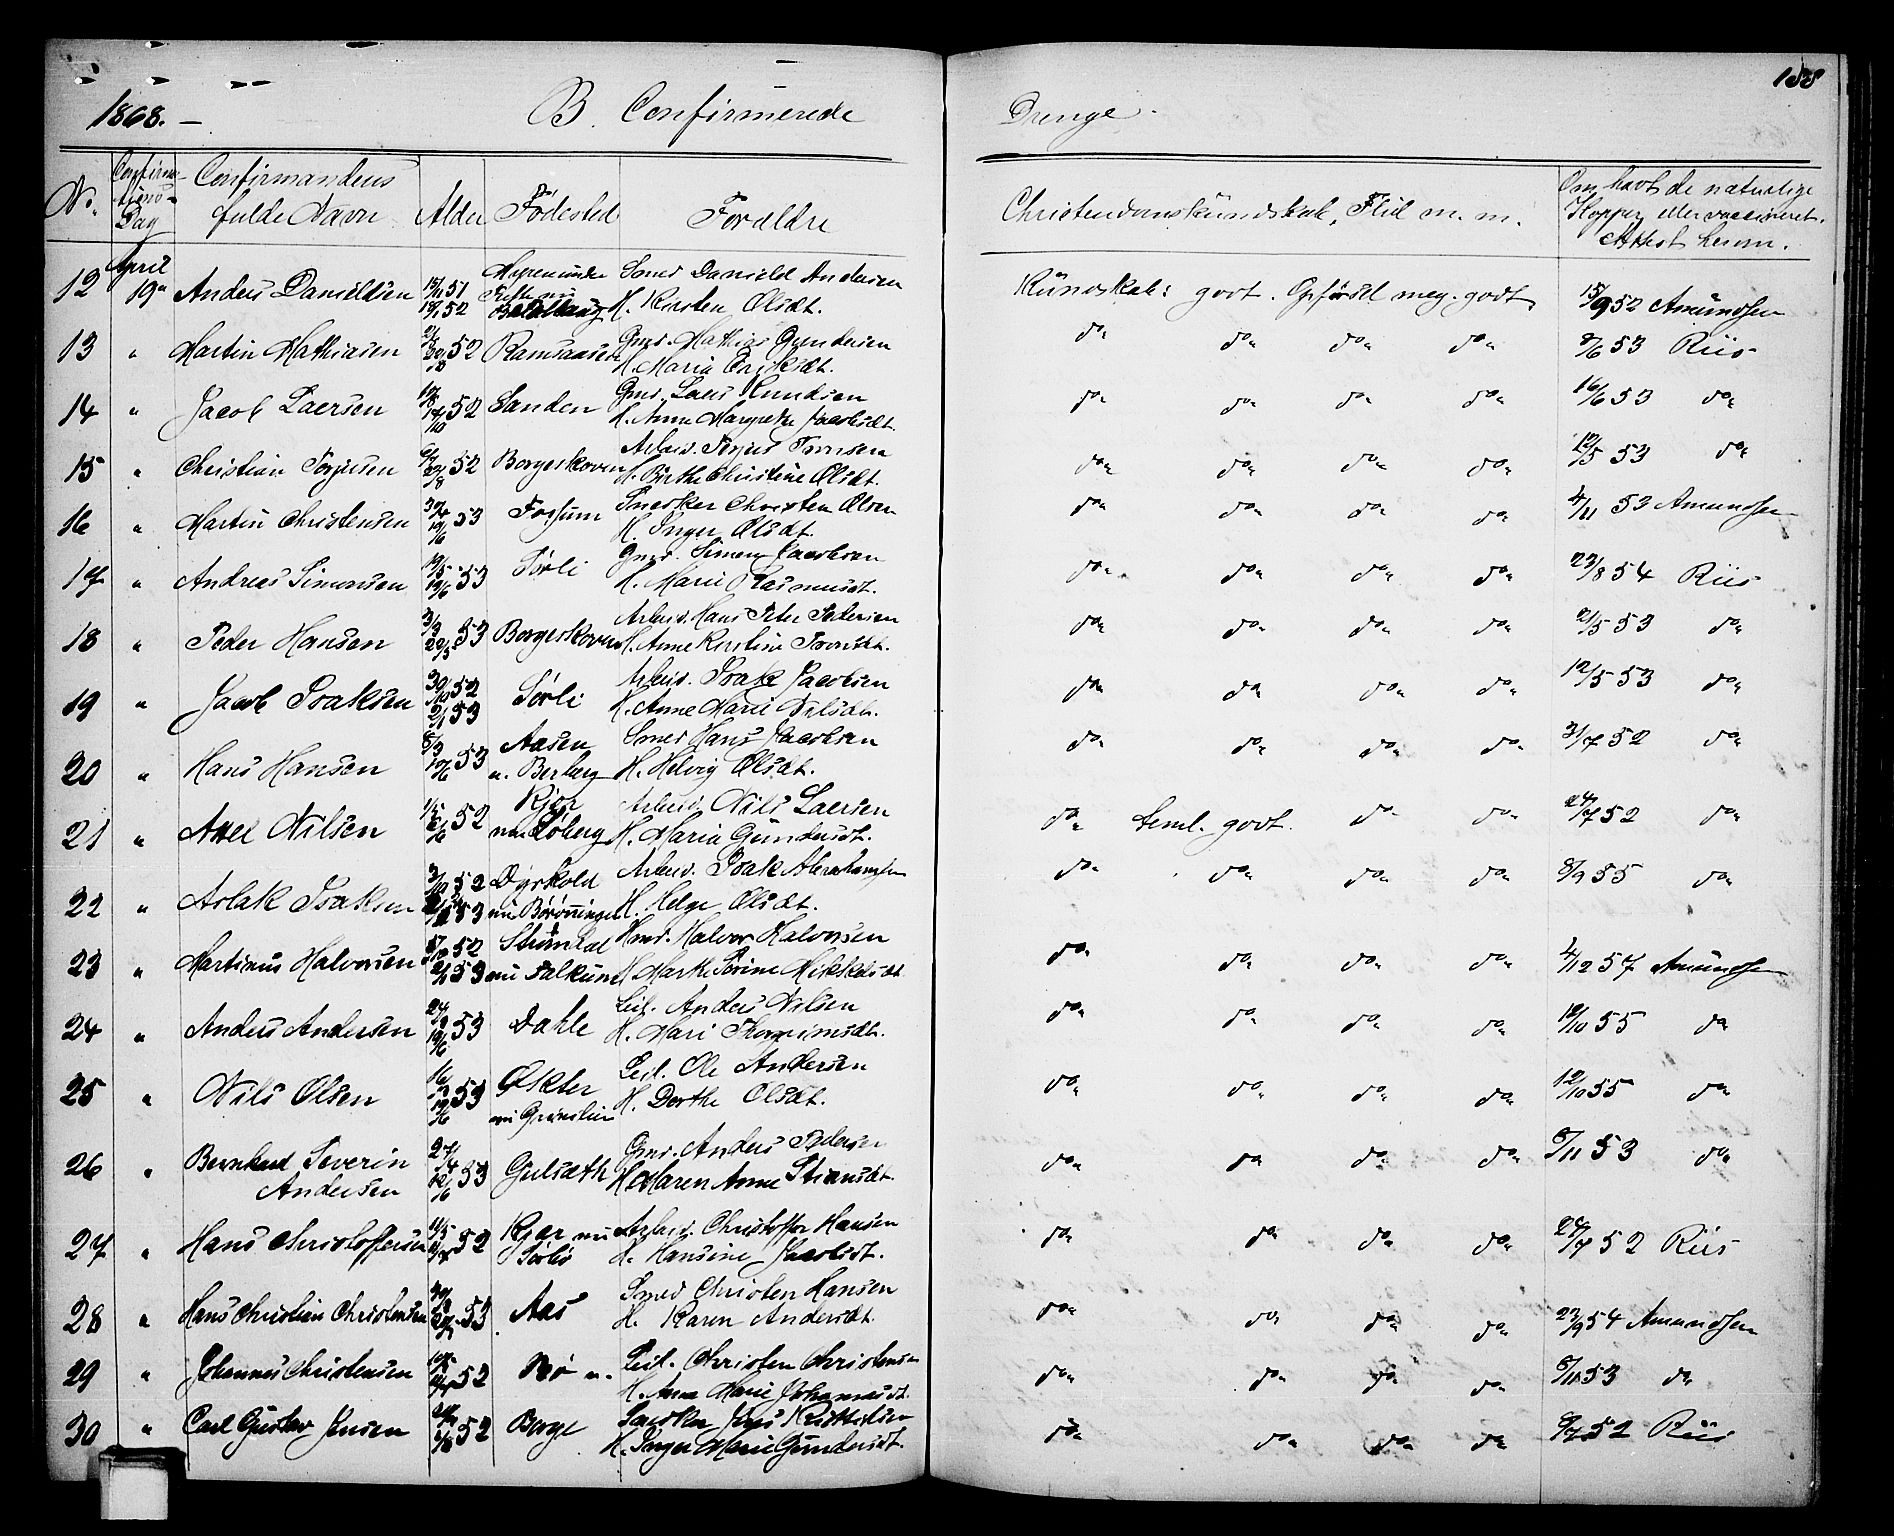 1868. — B. Confirmerede Drenge. 158
No. Confirmations-Dag Confirmandens fulde Navn Alder Fødested Forældre Christendomskundskab, Flid m. m. Om havt de naturlige Kopper eller vaccineret. Attest herom.
April
12 19de Anders Danielsen 51 52 Smed Danield Andersen
H. Kirsten Olsdt. Kundskab: godt. Opførsel meg. godt. 15/9 52 Amundsen
13 " Martin Mathiasen 52 Ramsaasen Gmd. Mathias Gundersen
H. Maria Eriksdt. do do do do 8/6 53 Riis
14 " Jacob Laersen 52 Sanden Gmd. Laers Knudsen
H. Anne Margrethe Jacobsdt. do do do do 16/6 53 do
15 " Christian Torjusen 52 Borgeskoven Arbeid. Torjus Tronsen
H. Birthe Christine Olsdt. do do do do 12/5 53 do
16 " Martin Christensen 19/6 53 Fossum Snedker Christen Olsen
H. Inger Olsdt. do do do do 4/11 53 Amundsen
17 " Andreas Simonsen 19/5 19/6 53 Sørli Gmd. Simen Jacobsen
H. Marie Rasmusdt. do do do do 23/8 54 Riis
18 " Peder Hansen 3/3 22/5 53 Borgeskoven Arbeid. Hans Peter Pedersen
H. Anne Kirstine Tronsdt. do do do do 21/5 53 do
19 " Jacob Isaksen 30/10 52 2/1 53 Sørli Arbeid. Isak Jacobsen
H. Anne Marie Nilsdt. do do do do 12/5 53 do
20 " Hans Hansen 8/3 53 Aasen
u. Berberg Smed Hans Jacobsen
H. Helvig Olsdt. do do do do 31/7 52 do
21 " Axel Nilsen 52 Kjør
nu Løberg Arbeid. Nils Laersen
H. Maria Gundersdt. do Teml. godt. do do 24/7 52 do
22 " Aslak Isaksen 52 53 Dyrkold
nu Børønningen Arbeid. Isak Abrahamsen
H. Helge Olsdt. do do do do 8/9 55 do
23 " Martinus Halvorsen 52 2/1 53 Strømdal
nu Falkum Hmd. Halvor Halvorsen
H. Marthe Sørine Mikkelsdt do do do do 4/12 57 Amundsen
24 " Anders Andersen 19/6 53 Dahle Leil. Anders Nilsen
H. Mari Thorgrimsdt. do do do do 12/10 55 do
25 " Nils Olsen 53 Økter
nu Grønstein Leil. Ole Andersen
H. Dorthe Olsdt. do do do do 12/10 55 do
26 " Bernhard Severin
Andersen 27/4 12/6 53 Gulsæth Gmd. Anders Pedersen
H. Maren Anne Stiansdt. do do do do 8/11 53 do
27 " Hans Christoffersen 11/5 52 Kjær nu
Sørbø Arbeid. Christoffer Hansen
H. Hansine Jacobsdt. do do do do 24/7 52 Riis
28 " Hans Christian Christensen 53 Aas Smed Christen Hansen
H. Karen Andersdt. do do do do 23/9 54 Amundsen
29 " Johannes Christensen 52 Bø n. Leil. Christen Christensen
H. Anne Marie Johannesdt. do do do do 8/11 53 do
30 " Carl Gustav Jensen 52 Borge Snedker Jens Kittelsen
H. Inger Marie Gundersdt. do do do do 9/7 52 Riis